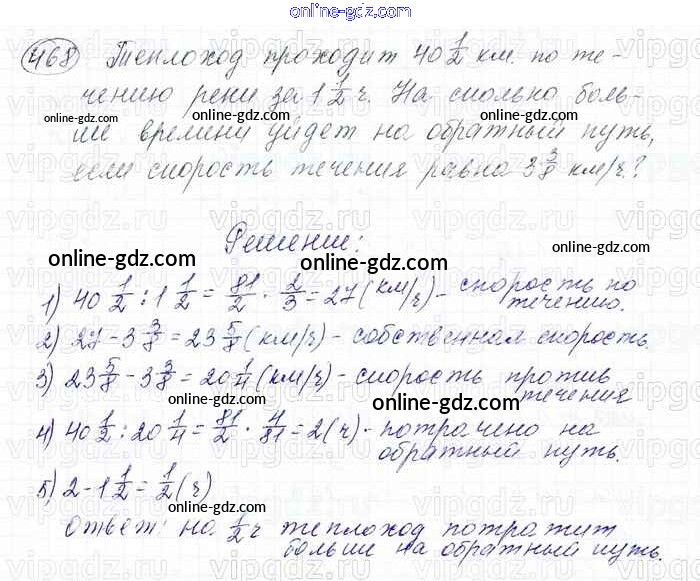 online-gdz.com
468 Теплоход проходит 40 1/2 км. по те-
чению реки за 1 1/2 ч. На сколько боль-
ше времени уйдет на обратный путь,
если скорость течения равна 3 3/8 км/ч?
Решение:
1) 40 1/2 : 1 1/2 = 81/2 · 2/3 = 27 (км/ч) - скорость по течению.
2) 27 - 3 3/8 = 23 5/8 (км/ч) - собственная скорость.
3) 23 5/8 - 3 3/8 = 20 1/4 (км/ч) - скорость против течения
4) 40 1/2 : 20 1/4 = 81/2 · 4/81 = 2 (ч) - потрачено на обратный путь.
5) 2 - 1 1/2 = 1/2 (ч)
Ответ: на 1/2 ч теплоход потратит больше на обратный путь.
online-gdz.com
online-gdz.com
online-gdz.com
online-gdz.com
online-gdz.com
online-gdz.com
online-gdz.com
online-gdz.com
online-gdz.com